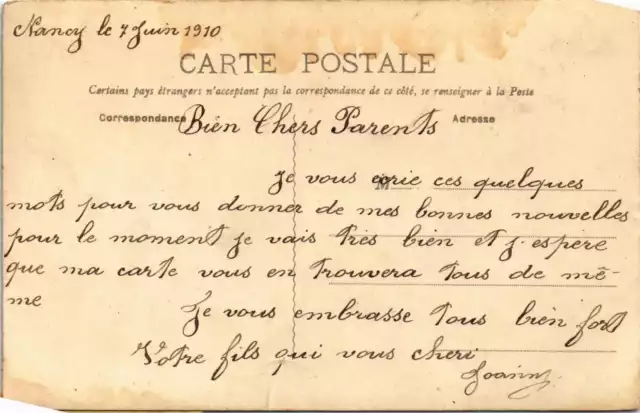 Nancy le 7 Juin 1910
CARTE POSTALE
Certains pays étrangers n'acceptant pas la correspondance de ce côté, se renseigner à la Poste
Correspondance
Adresse
Bien Chers Parents
Je vous ecrie ces quelques
mots pour vous donner de mes bonnes nouvelles
pour le moment je vais très bien et j'espère
que ma carte vous en trouvera tous de mê-
me
Je vous embrasse tous bien fort
Votre fils qui vous cheri
Joanny